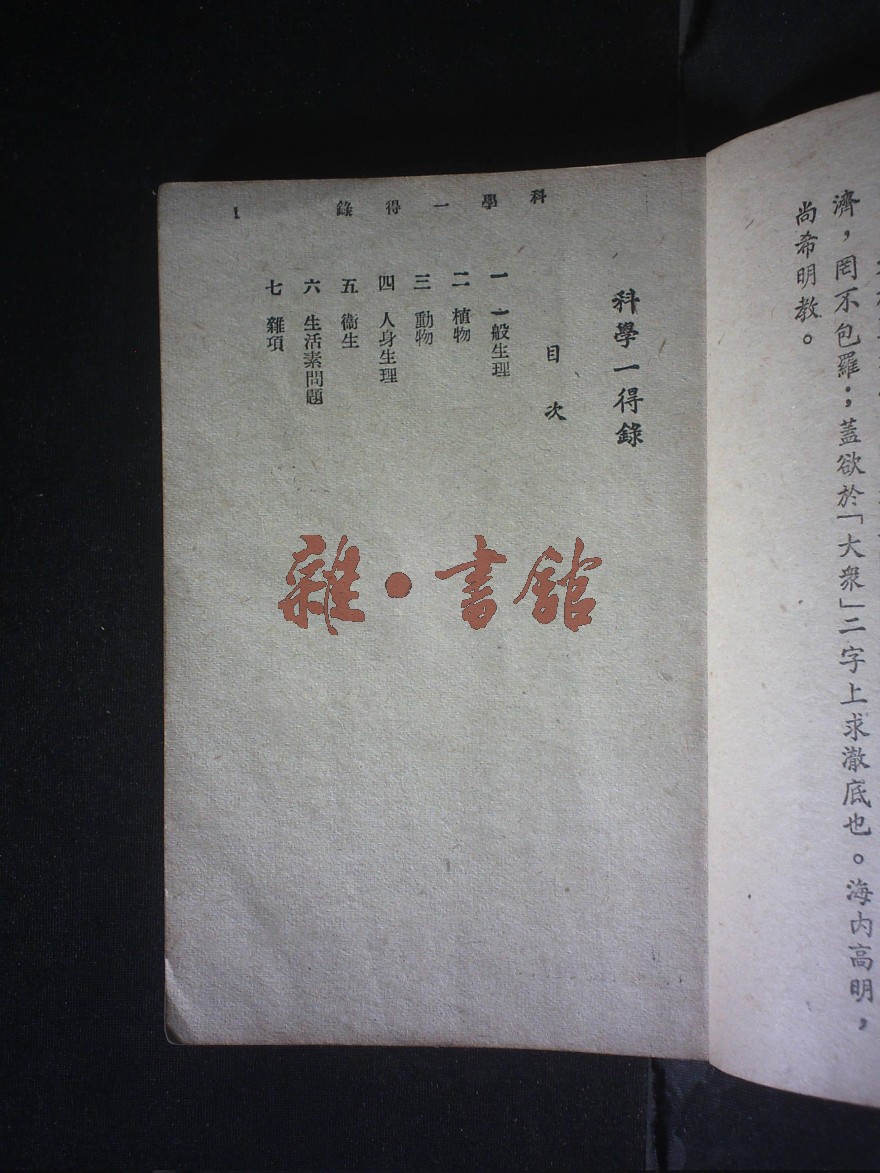 濟，罔不包羅；蓋欲於「大衆」二字上求澈底也。海內高明，
尚希明教。
科學一得錄
1
科學一得錄
目次
一 一般生理
二 植物
三 動物
四 人身生理
五 衞生
六 生活素問題
七 雜項
雜·書館